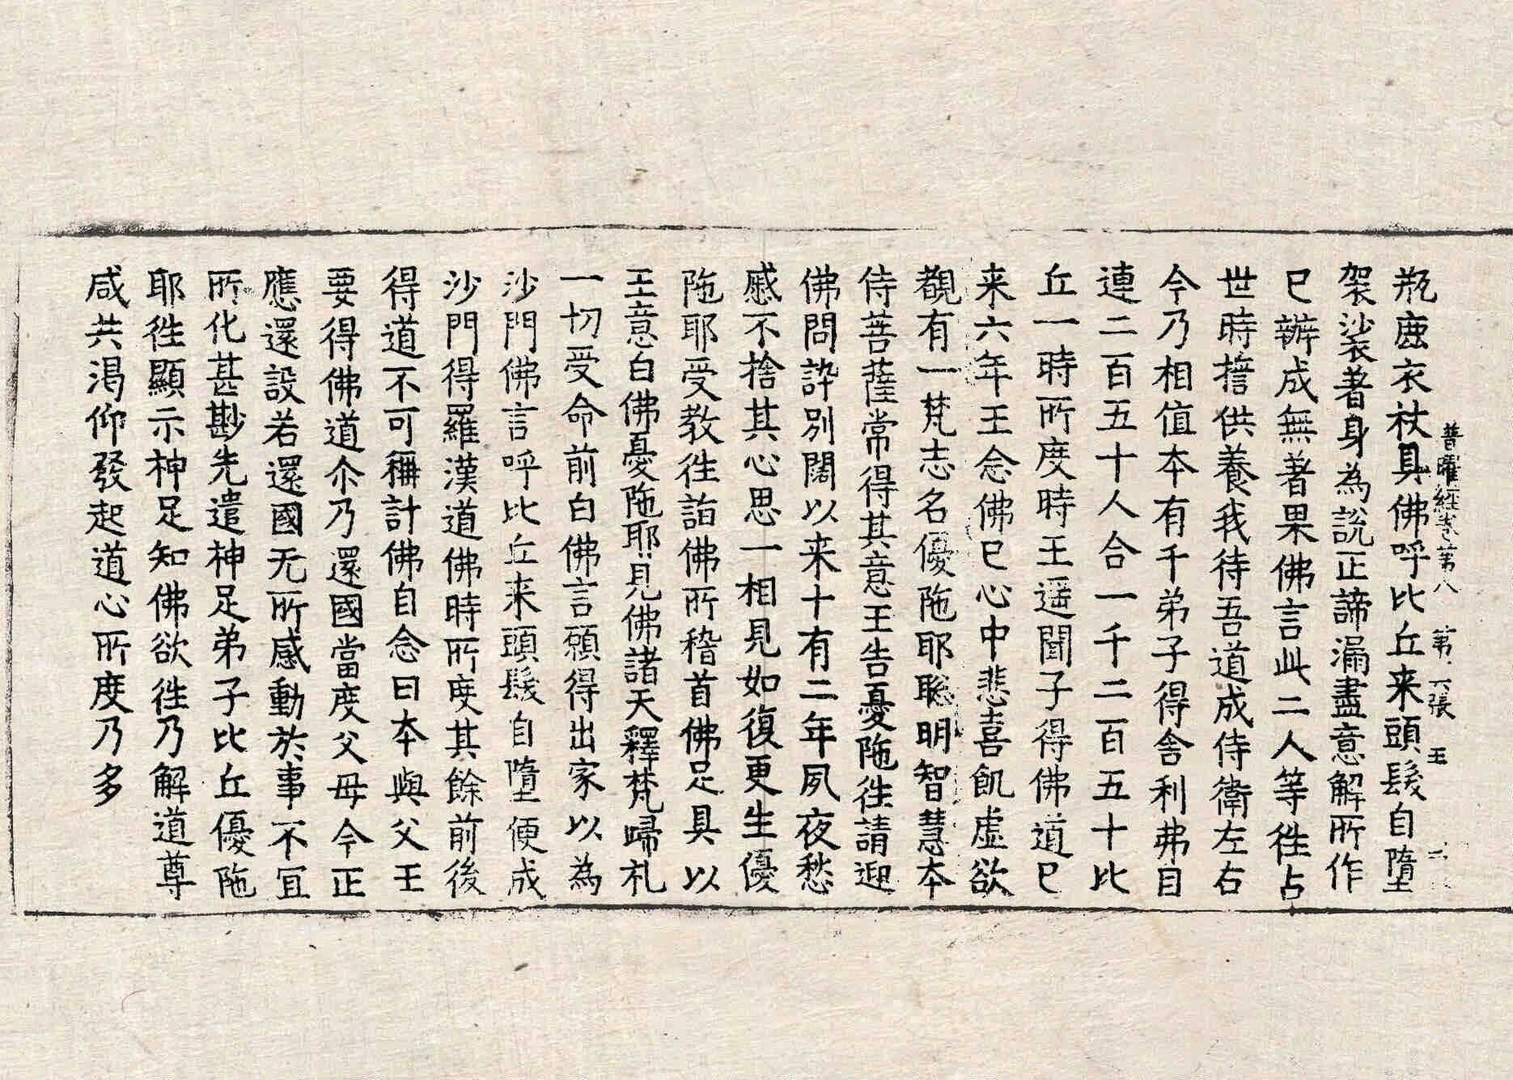 瓶鹿衣杖具佛呼比丘来頭髮自墮
袈沙裟著身為說正諦漏盡意解所作
已辦成無著果佛言此二人等徃占
世時擔供養我待吾道成侍衛左右
今乃相值本有千弟子得舍利弗目
連二百五十人合一千二百五十比
丘一時所度時王遥聞子得佛道已
来六年王念佛已心中悲喜飢虛欲
覩有一梵志名優陁耶聡明智慧本
侍菩薩常得其意王告憂陁徃請迎
佛問訃别闊以来十有二年夙夜愁
慼不捨其心思一相見如復更生優
陁耶受教徃詣佛所稽首佛足具以
王意白佛憂陁耶見佛諸天釋梵歸礼
一切受命前白佛言願得出家以為
沙門佛言呼比丘来頭髮自墮便成
沙門得羅漢道佛時所度其餘前後
得道不可稱計佛自念曰本與父王
要得佛道尒乃還國當度父母今正
應還設若還國无所感動於事不冝
所化甚尠先遣神足弟子比丘優陁
耶徃顯示神足知佛欲徃乃解道尊
咸共渴仰發起道心所度乃多
普曜經卷第八 第六張 王